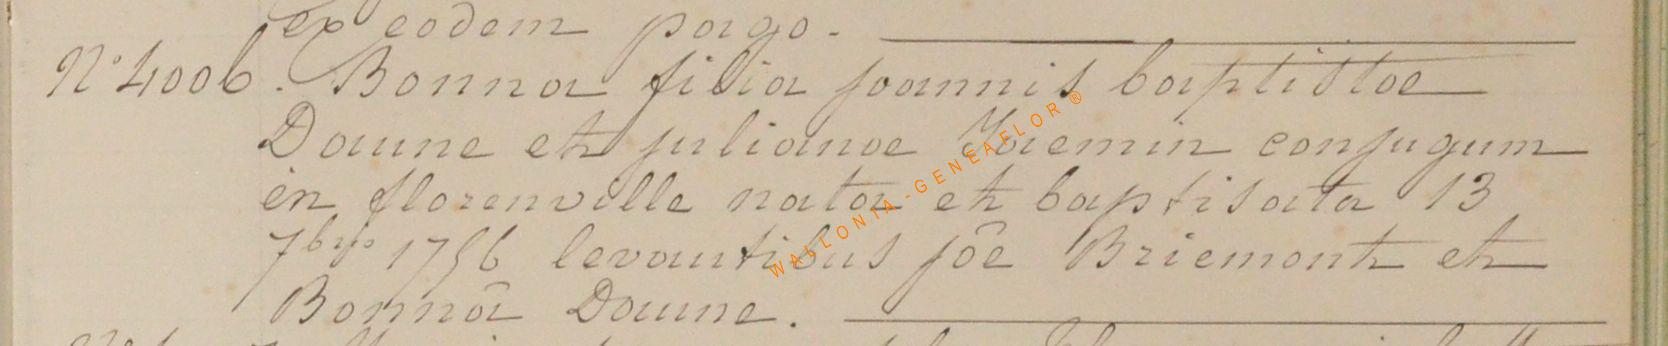 ex eodem pago.
N° 4006. Bonna filia joannis baptistae
Daune et julianae Jaemin conjugum
in florenville nata et baptisata 13
7bris 1756 levantibus jôe Briemont et
Bonnâ Daune.
WALLONIA-GENEAFLOR®